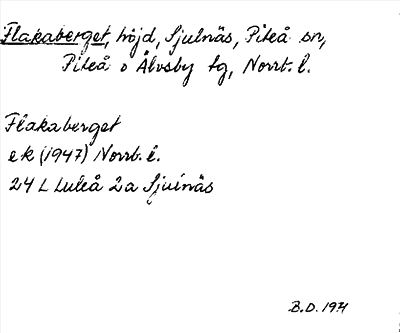 Flakaberget, höjd, Sjulnäs, Piteå sn,
Piteå o Älvsby tg, Norrt. l.
Flakaberget
ek (1947) Norrb. l.
24 L Luleå 2a Sjulnäs
B.D. 1971